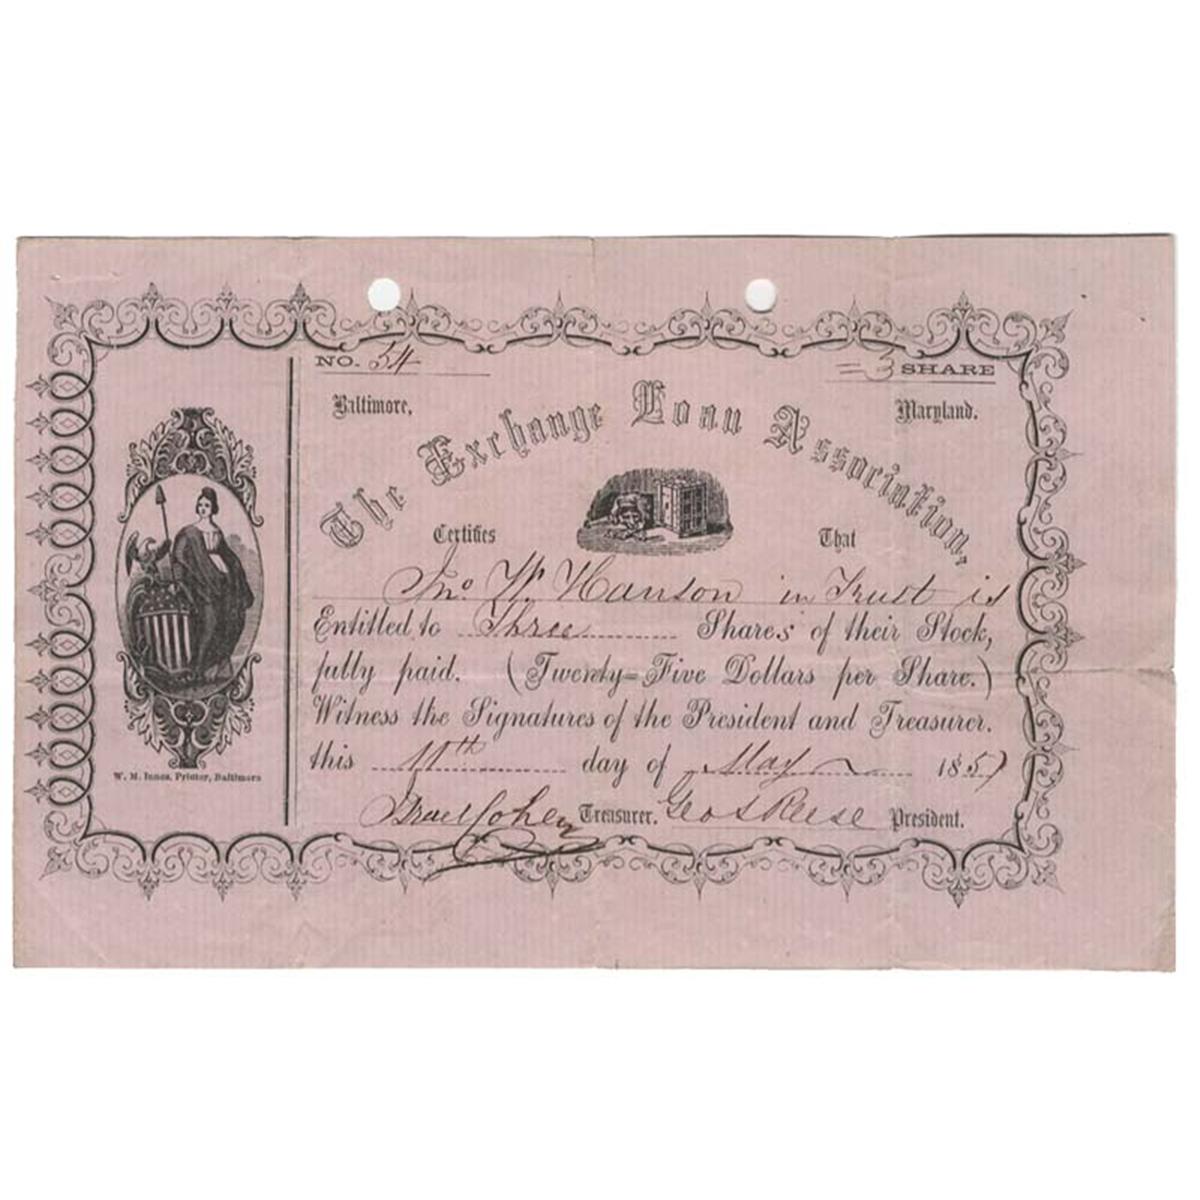 NO. 54
= 3 SHARE
Baltimore, Maryland.
The Exchange Loan Association,
Certifies That
Jno. W. Hanson in Trust is
Entitled to Three Shares of their Stock,
fully paid. (Twenty=Five Dollars per Share.)
Witness the Signatures of the President and Treasurer.
this 11th day of May 1857
Israel Cohen Treasurer. Geo S Reese President.
W. M. Innes, Printer, Baltimore